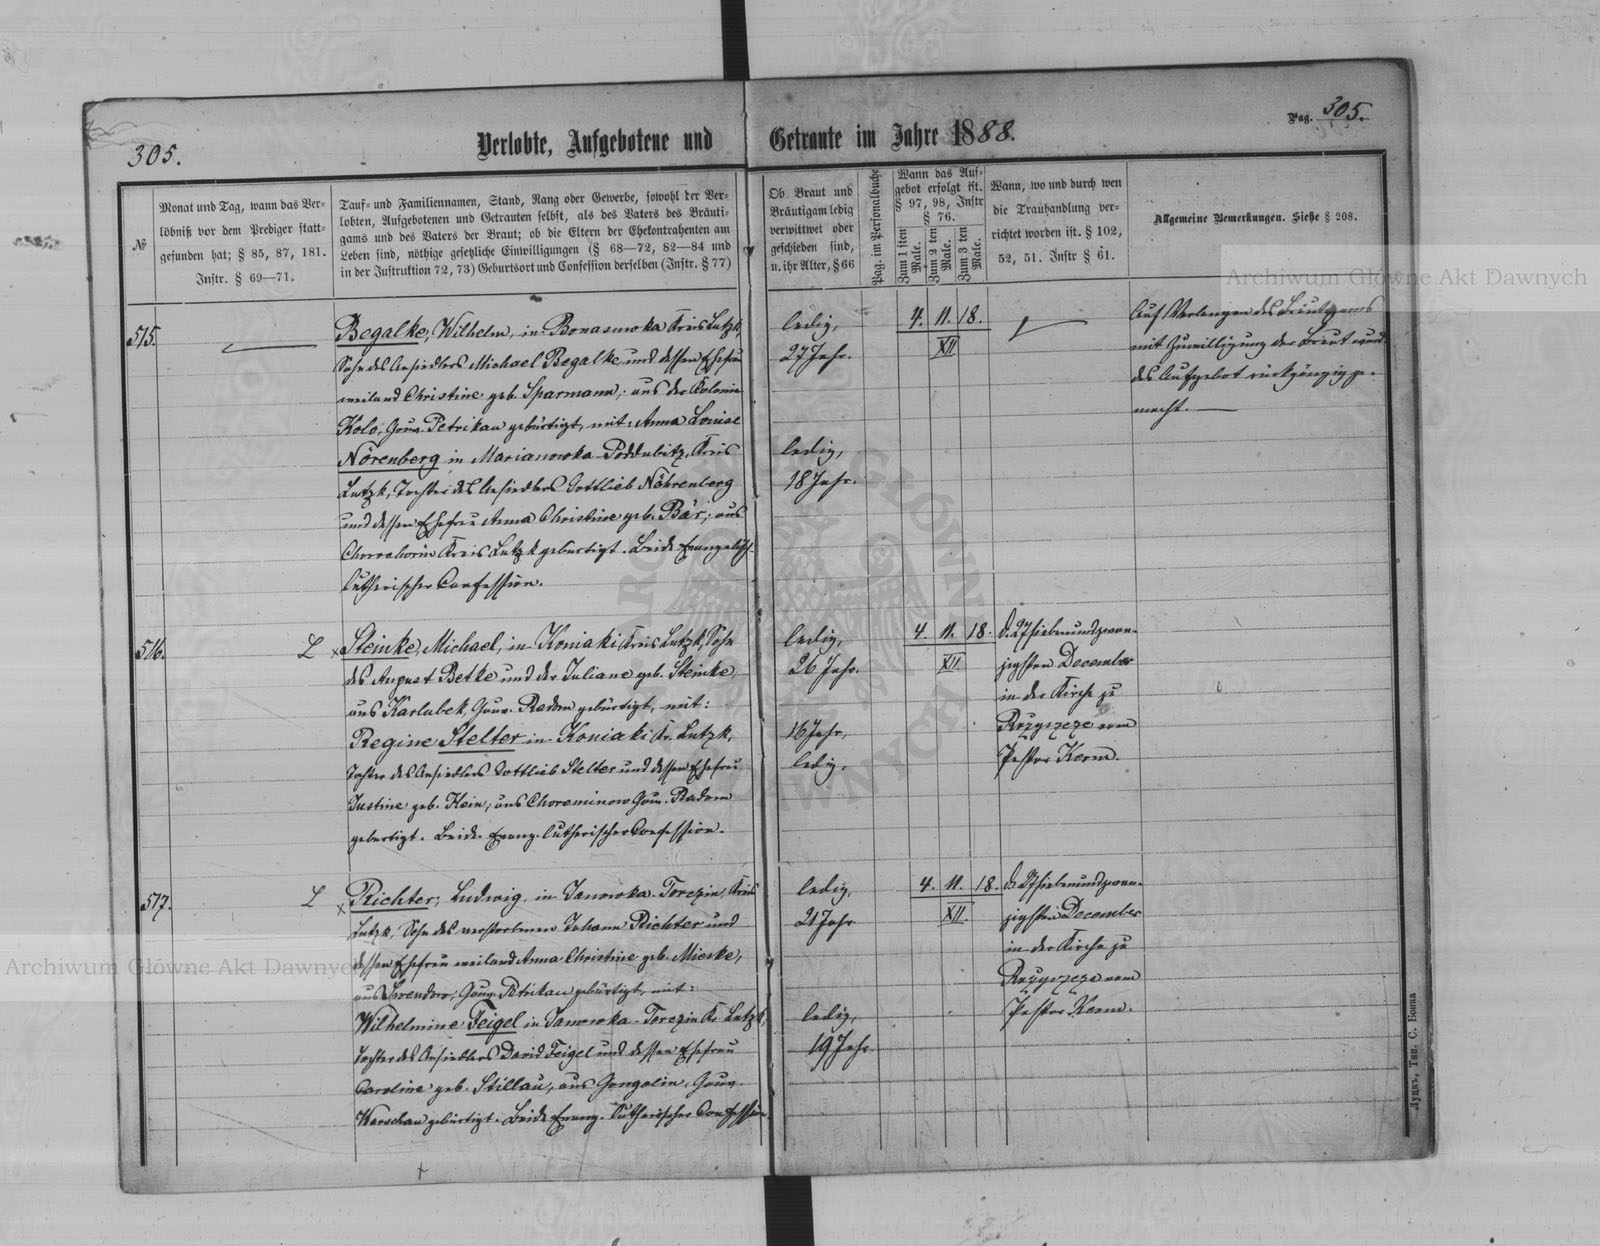 305.
Verlobte, Aufgebotene und Getraute im Jahre 1888.
Pag. 305.
№
Monat und Tag, wann das Ver-
löbniß vor dem Prediger statt-
gefunden hat; § 85, 87, 181.
Instr. § 69—71.
Tauf- und Familiennamen, Stand, Rang oder Gewerbe, sowohl der Ver-
lobten, Aufgebotenen und Getrauten selbst, als des Vaters des Bräuti-
gams und des Vaters der Braut; ob die Eltern der Ehekontrahenten am
Leben sind, nöthige gesetzliche Einwilligungen (§ 68—72, 82—84 und
in der Instruktion 72, 73) Geburtsort und Confession derselben (Instr. § 77)
Ob Braut und
Bräutigam ledig
verwittwet oder
geschieden sind,
u. ihr Alter, § 66
Pag. im Personalbuche
Wann das Auf-
gebot erfolgt ist.
§ 97, 98, Instr
§ 76.
Zum 1 sten
Male.
Zum 2 ten
Male.
Zum 3 ten
Male.
Wann, wo und durch wen
die Trauhandlung ver-
richtet worden ist. § 102,
52, 51. Instr § 61.
Allgemeine Bemerkungen. Siehe § 208.
515.
Begalke, Wilhelm, in Kreis Lutzk,
Sohn des Ansiedlers Michael Begalke und dessen Ehefrau
weiland Christine geb. Sparmann, aus der Kolonie
Kolo, Gouv. Petrikau gebürtigt, mit: Anna Louise
Nörenberg in Marianowka-Poddubitz, Kreis
Lutzk, Tochter des Ansiedlers Gottlieb Nöhrenberg
und dessen Ehefrau Anna Christine geb. Bär, aus
Kreis Lutzk gebürtigt. Beide Evangelisch-
lutherischer Confession.
ledig,
27 Jahr.
ledig,
18 Jahr.
4. 11. 18.
XII
Auf Verlangen des Bräutigams
mit Zuwilligung der Braut wurde
des Aufgebot rückgängig ge-
macht.
516.
L
x Steinke, Michael, in Koniaki Kreis Lutzk, Sohn
des August Betke und der Juliane geb. Steinke,
aus Karlubek, Gouv. Radom gebürtigt, mit:
Regine Stelter in Koniaki Kr. Lutzk,
Tochter des Ansiedlers Gottlieb Stelter und dessen Ehefrau
Justine geb. Klein, aus Choreminow Gouv. Radom
gebürtigt. Beide Evang. lutherischer Confession.
ledig,
26 Jahr.
16 Jahr,
ledig.
4. 11. 18.
XII
d. 27 siebenundzwan-
zigsten December
in der Kirche zu
Rożyszcze vom
Pastor Kerm.
517.
L
x Richter, Ludwig, in Janowka-Torczin, Kreis
Lutzk, Sohn des verstorbenen Johann Richter und
dessen Ehefrau weiland Anna Christine geb. Mieske,
aus Gouv. Petrikau gebürtigt, mit:
Wilhelmine Feigel in Janowka-Torczin Kr. Lutzk,
Tochter des Ansiedlers David Feigel und dessen Ehefrau
Caroline geb. Stillau, aus Gongolin, Gouv.
Warschau gebürtigt. Beide Evang. lutherischer Confession.
ledig,
21 Jahr
ledig,
19 Jahr.
4. 11. 18.
XII.
d. 27 siebenundzwan-
zigsten December
in der Kirche zu
Rożyszcze vom
Pastor Kerm.
Луцкъ, Тип. С. Бокка
Archiwum Główne Akt Dawnych
Archiwum Główne Akt Dawnych